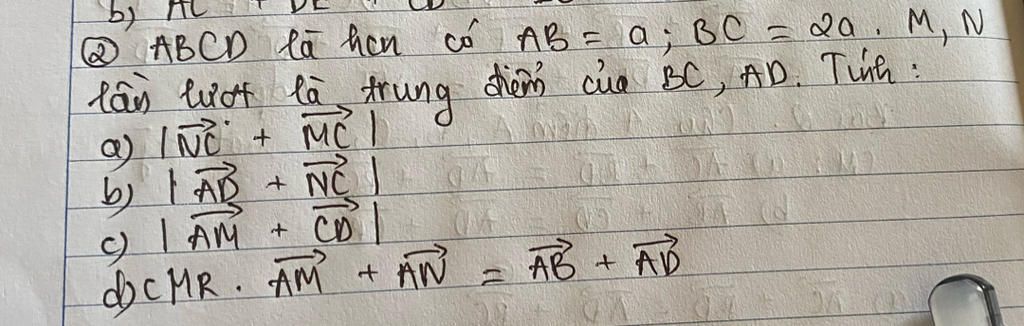 b) AC + DE CD
② ABCD là hcn có AB = a ; BC = 2a . M, N
lần lượt là trung điểm của BC, AD. Tính :
a) |NC→ + MC→ |
b) | AD→ + NC→ |
c) | AM→ + CD→ |
d) CMR . AM→ + AN→ = AB→ + AD→